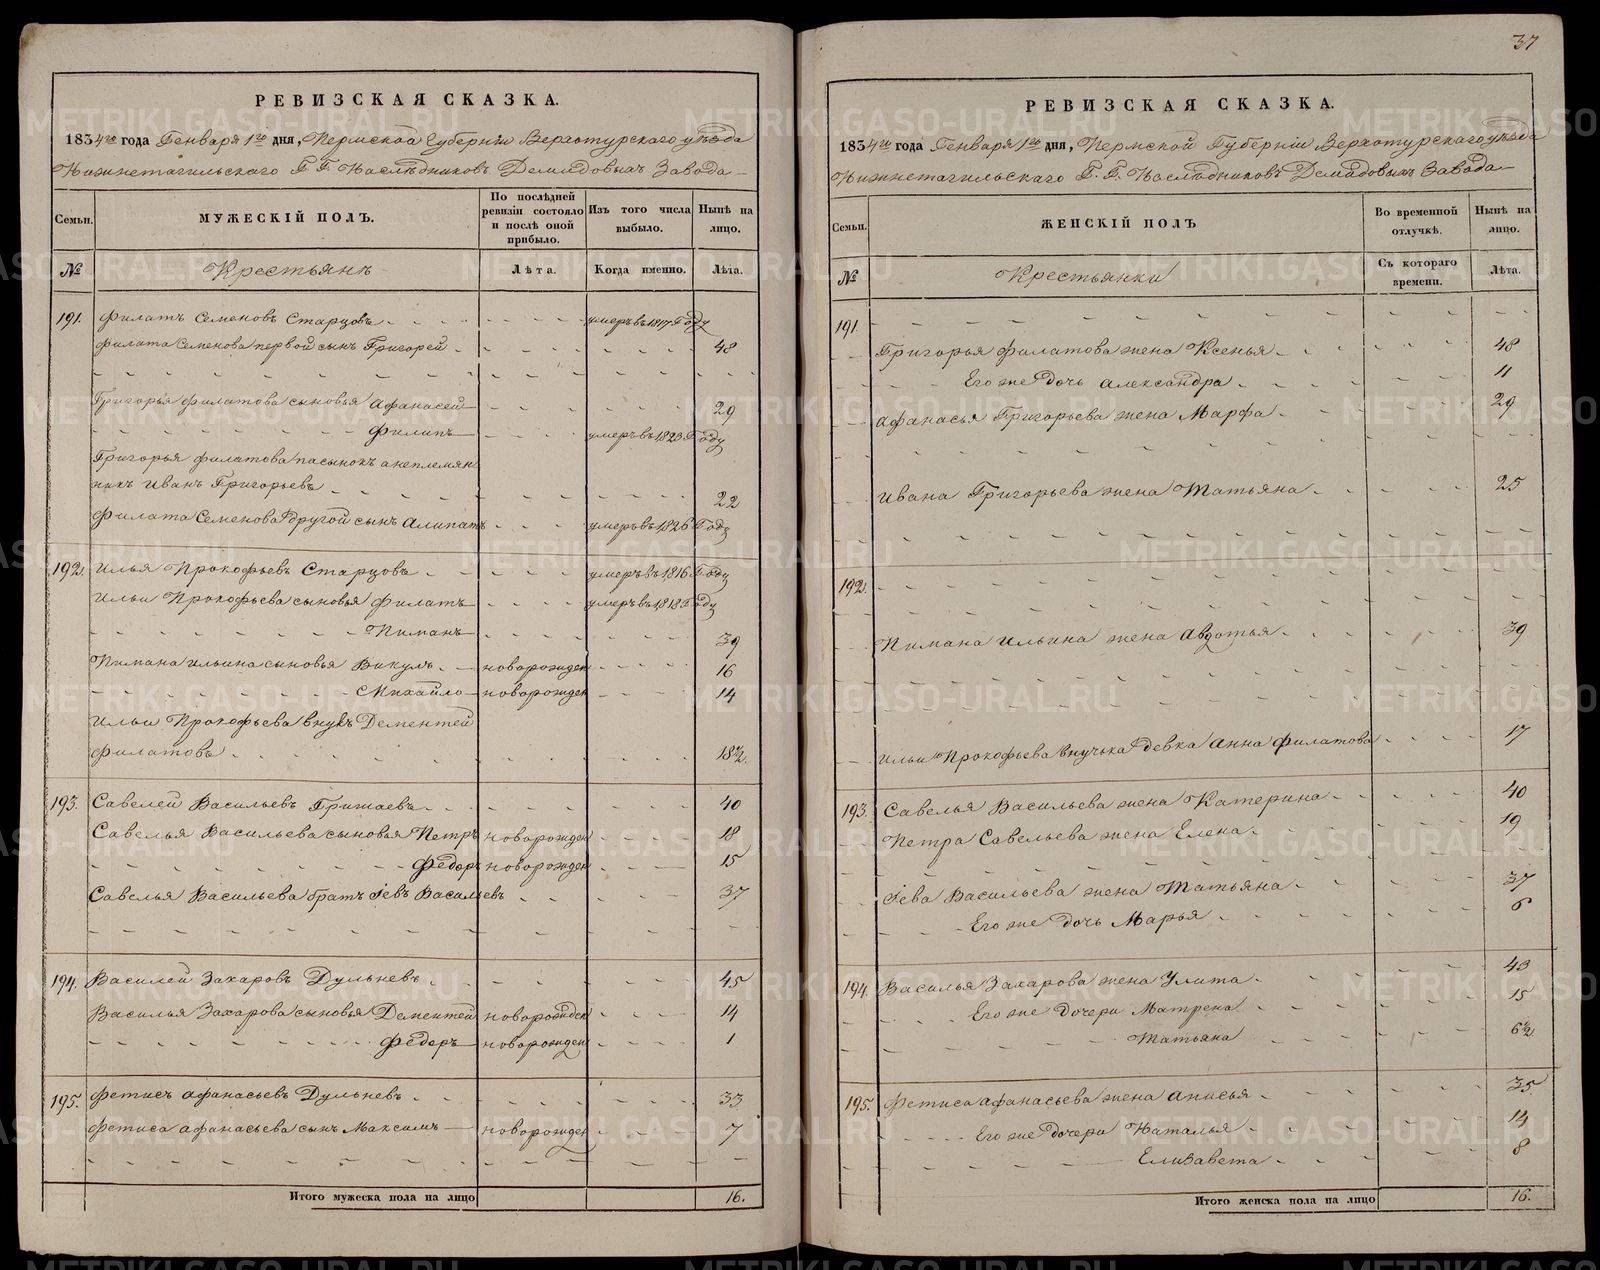 РЕВИЗСКАЯ СКАЗКА.
1834го года Генваря 1го дня, Пермской Губернiи Верхотурскаго уѣзда
Нижнетагильскаго Г. Г. Наслѣдниковъ Демидовыхъ Завода
Семьи. МУЖЕСКIЙ ПОЛЪ. По послѣдней ревизiи состояло и послѣ оной прибыло. Изъ того числа выбыло. Нынѣ на лицо.
№ Крестьянѣ Лѣта. Когда именно. Лѣта.
191. Филатъ Семеновъ Старцовъ умеръ въ 1817 Году
Филата Семенова первой сынъ Григорей 48
Григорья Филатова сыновья Афанасей 29
Филипъ умеръ въ 1823 Году
Григорья Филатова пасынокъ а неплемян
никъ Иванъ Григорьевъ 22
Филата Семенова другой сынъ Алипатъ умеръ въ 1826 Году
192. Илья Прокофьевъ Старцовъ умеръ въ 1816 Году
Ильи Прокофьева сыновья Филатъ умеръ въ 1818 Году
Пиманъ 39
Пимана Ильина сыновья Викулъ новорожден 16
Михайло новорожден 14
Ильи Прокофьева внукъ Дементей
Филатовъ 18½.
193. Савелей Васильевъ Гришаевъ 40
Савелья Васильева сыновья Петръ новорожден 18
Федоръ новорожден 15
Савелья Васильева братъ Iевъ Васильевъ 37
194. Василей Захаровъ Дульневъ 45
Василья Захарова сыновья Дементей новорожден 14
Федоръ новорожден 1
195. Фетисъ Афанасьевъ Дульневъ 33
Фетиса Афанасьева сынъ Максимъ новорожден 7
Итого мужеска пола на лицо 16.
37
РЕВИЗСКАЯ СКАЗКА.
1834го года Генваря 1го дня, Пермской Губернiи Верхотурскаго уѣзда
Нижнетагильскаго Г. Г. Наслѣдниковъ Демидовыхъ Завода
Семьи. ЖЕНСКIЙ ПОЛЪ Во временной отлучкѣ. Нынѣ на лицо.
№ Крестьянки Съ котораго времени. Лѣта.
191.
Григорья Филатова жена Ксенья 48
Его же дочь Александра 11
Афанасья Григорьева жена Марфа 29
Ивана Григорьева жена Татьяна 25
192.
Пимана Ильина жена Авдотья 39
Ильи Прокофьева внучька девка Анна Филатова 17
193. Савелья Васильева жена Катерина 40
Петра Савельева жена Елена 19
Iева Васильева жена Татьяна 37
Его же дочь Марья 6
194. Василья Захарова жена Улита 43
Его же дочери Матрена 15
Татьяна 6½
195. Фетиса Афанасьева жена Анисья 35
Его же дочери Наталья 14
Елизавета 8
Итого женска пола на лицо 16.
METRIKI.GASO-URAL.RU